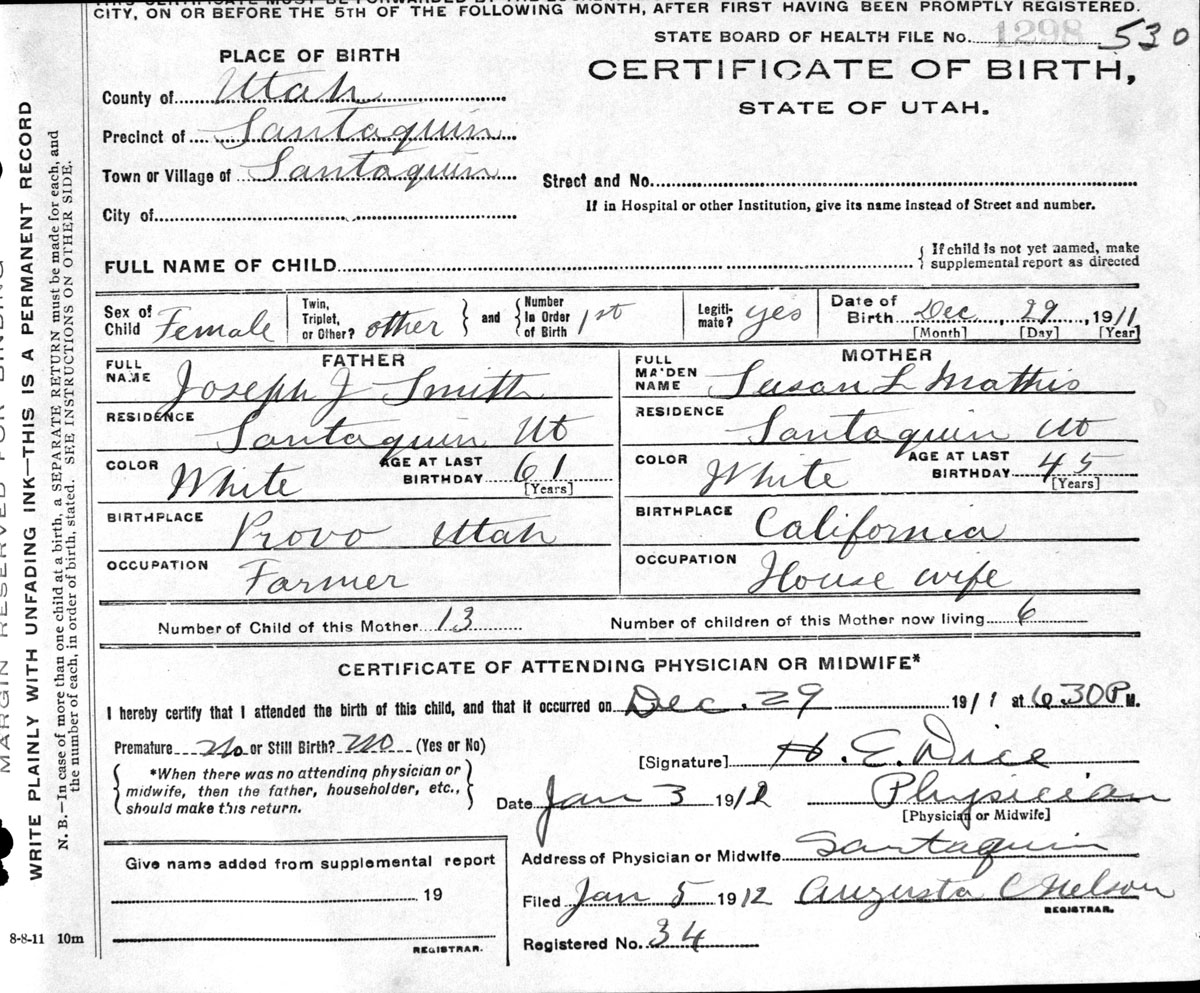 CITY, ON OR BEFORE THE 5TH OF THE FOLLOWING MONTH, AFTER FIRST HAVING BEEN PROMPTLY REGISTERED.
STATE BOARD OF HEALTH FILE No. 1298 530
PLACE OF BIRTH
CERTIFICATE OF BIRTH,
STATE OF UTAH.
County of Utah
Precinct of Santaquin
Town or Village of Santaquin
Street and No.
City of
If in Hospital or other Institution, give its name instead of Street and number.
FULL NAME OF CHILD
{ If child is not yet named, make
supplemental report as directed
Sex of
Child Female
Twin,
Triplet,
or Other? other
} and {
Number
In Order
of Birth 1st
Legiti-
mate? yes
Date of
Birth Dec 29, 1911
[Month] [Day] [Year]
FATHER
FULL
NAME Joseph J Smith
RESIDENCE
Santaquin Ut
COLOR White
AGE AT LAST
BIRTHDAY 61
[Years]
BIRTHPLACE
Provo Utah
OCCUPATION
Farmer
MOTHER
FULL
MAIDEN
NAME Susan L Mathis
RESIDENCE
Santaquin Ut
COLOR White
AGE AT LAST
BIRTHDAY 45
[Years]
BIRTHPLACE
California
OCCUPATION
House wife
Number of Child of this Mother 13
Number of children of this Mother now living 6
CERTIFICATE OF ATTENDING PHYSICIAN OR MIDWIFE*
I hereby certify that I attended the birth of this child, and that it occurred on Dec. 29 1911 at 6.30 P M.
Premature No or Still Birth? No (Yes or No)
{ *When there was no attending physician or
midwife, then the father, householder, etc.,
should make this return. }
[Signature] H. E. Dice
Date Jan 3 1912 Physician
[Physician or Midwife]
Give name added from supplemental report
19
REGISTRAR.
Address of Physician or Midwife Santaquin
Filed Jan 5 1912 Augusta C Nelson
REGISTRAR.
Registered No. 34
8-8-11 10m
MARGIN RESERVED FOR BINDING
WRITE PLAINLY WITH UNFADING INK—THIS IS A PERMANENT RECORD
N. B.—In case of more than one child at a birth, a SEPARATE RETURN must be made for each, and
the number of each, in order of birth, stated. SEE INSTRUCTIONS ON OTHER SIDE.